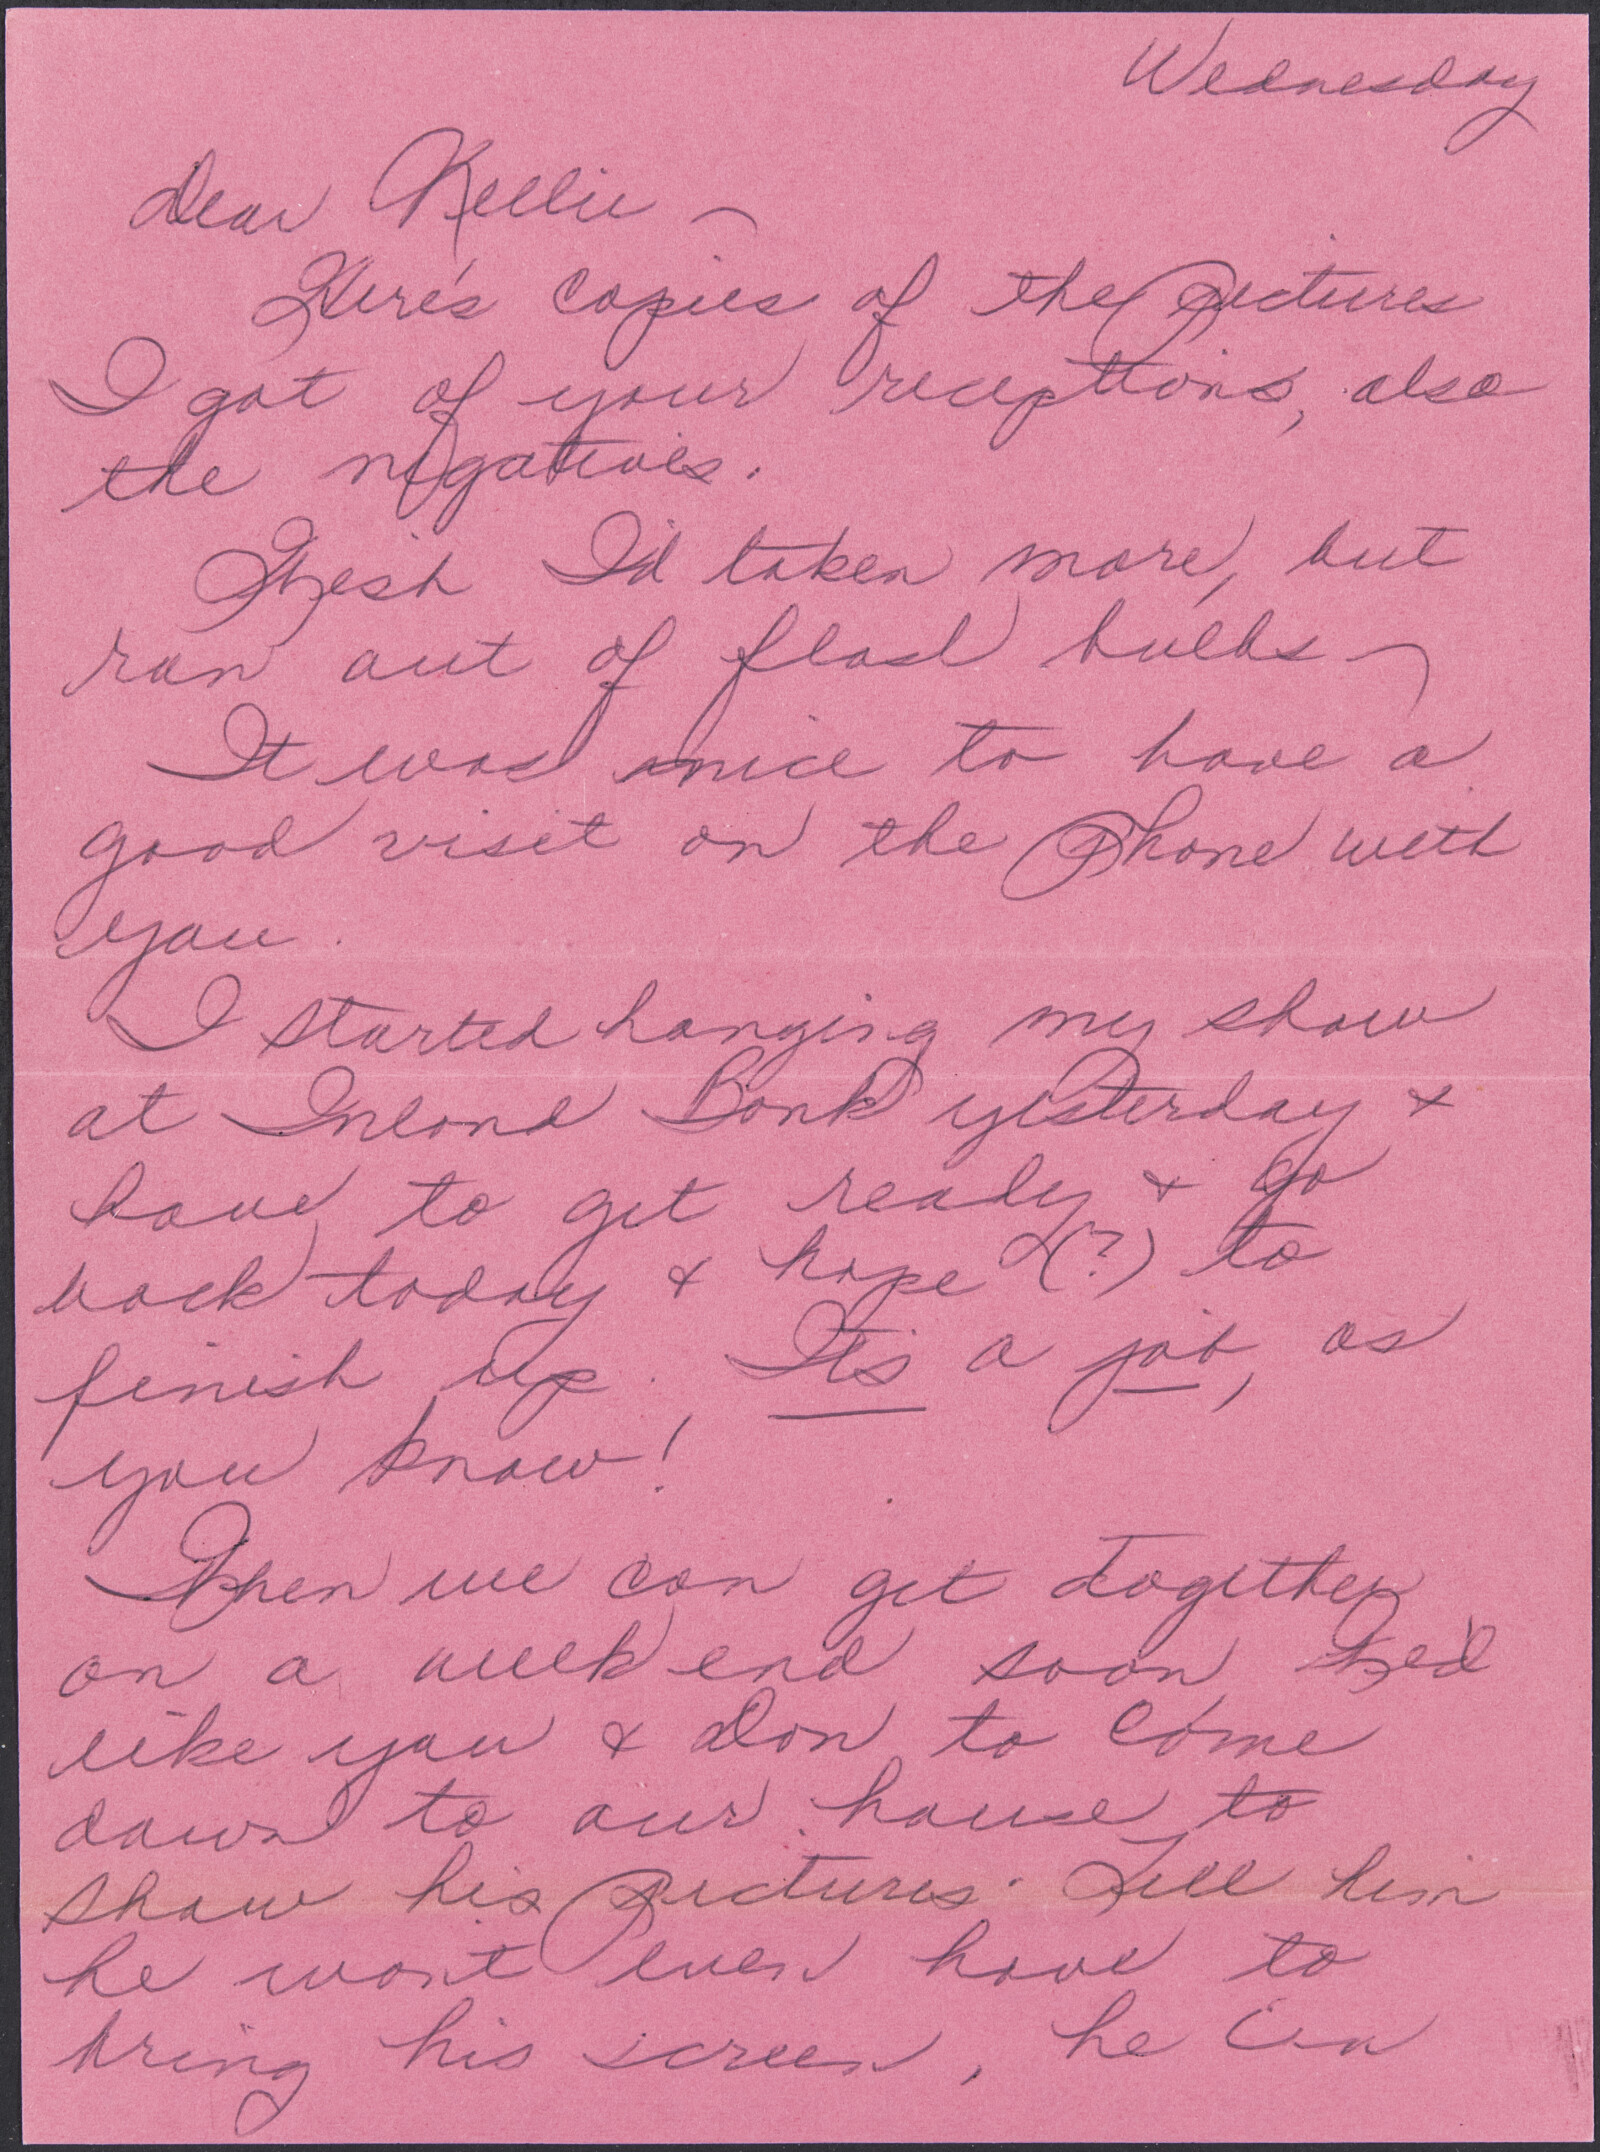 Wednesday
Dear Kellie -
Here's copies of the pictures
I got of your receptions, also
the negatives.
Wish I'd taken more, but
ran out of flash bulbs -
It was nice to have a
good visit on the phone with
you.
I started hanging my show
at Inland Bank yesterday &
have to get ready & go
back today & hope (?) to
finish up. It's a job, as
you know!
When we can get together
on a week end soon we'd
like you & Don to come
down to our house to
show his pictures. Tell him
he won't even have to
bring his screen, he can